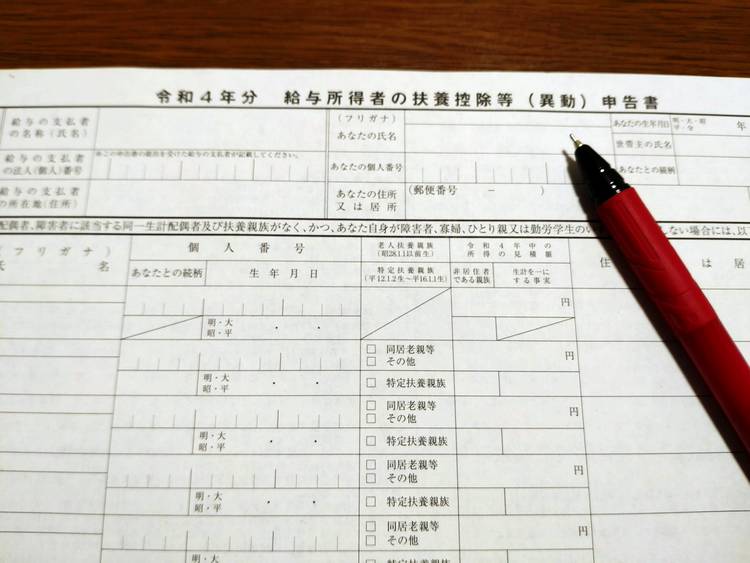 令和4年分 給与所得者の扶養控除等(異動)申告書
給与の支払者
の名称(氏名)
(フリガナ)
あなたの氏名
あなたの生年月日
明・大・昭
平・令
年
世帯主の氏名
給与の支払者
の法人(個人)番号
※この申告書の提出を受けた給与の支払者が記載してください。
あなたの個人番号
あなたとの続柄
給与の支払者
の所在地(住所)
あなたの住所
又は居所
(郵便番号 - )
配偶者、障害者に該当する同一生計配偶者及び扶養親族がなく、かつ、あなた自身が障害者、寡婦、ひとり親又は勤労学生のい
しない場合には、以
(フリガナ)
氏 名
個人番号
あなたとの続柄
生年月日
老人扶養親族
(昭28.1.1以前生)
特定扶養親族
(平12.1.2生〜平16.1.1生)
令和4年中の
所得の見積額
非居住者
である親族
生計を一に
する事実
住
は居
円
明・大
昭・平
・ ・
□ 同居老親等
□ その他
円
明・大
昭・平
・ ・
□ 特定扶養親族
□ 同居老親等
□ その他
円
明・大
昭・平
・ ・
□ 特定扶養親族
□ 同居老親等
□ その他
円
明・大
昭・平
・ ・
□ 特定扶養親族
□ 同居老親等
□ その他
円
明・大
□ 特定扶養親族